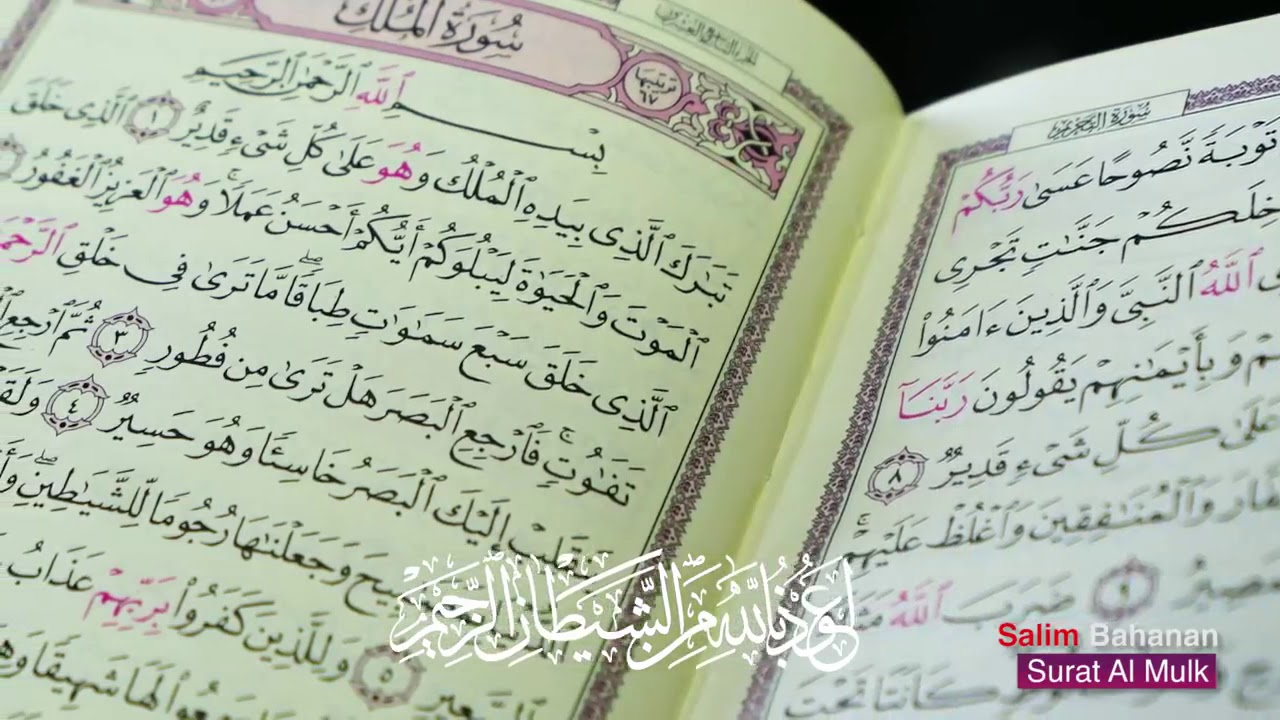 سُورَةُ المُلْكِ
ترتيبها ٦٧
بِسْمِ ٱللَّهِ ٱلرَّحْمَٰنِ ٱلرَّحِيمِ
تَبَٰرَكَ ٱلَّذِى بِيَدِهِ ٱلْمُلْكُ وَهُوَ عَلَىٰ كُلِّ شَىْءٍ قَدِيرٌ ١ ٱلَّذِى خَلَقَ
ٱلْمَوْتَ وَٱلْحَيَوٰةَ لِيَبْلُوَكُمْ أَيُّكُمْ أَحْسَنُ عَمَلًا ۚ وَهُوَ ٱلْعَزِيزُ ٱلْغَفُورُ
ٱلَّذِى خَلَقَ سَبْعَ سَمَٰوَٰتٍ طِبَاقًا ۖ مَّا تَرَىٰ فِى خَلْقِ
تَفَٰوُتٍ ۖ فَٱرْجِعِ ٱلْبَصَرَ هَلْ تَرَىٰ مِن فُطُورٍ ٣ ثُمَّ ٱرْجِعِ
إِلَيْكَ ٱلْبَصَرُ خَاسِئًا وَهُوَ حَسِيرٌ ٤
وَجَعَلْنَٰهَا رُجُومًا لِّلشَّيَٰطِينِ ۖ
٥ وَلِلَّذِينَ كَفَرُوا۟ بِرَبِّهِمْ عَذَابُ
لَهَا شَهِيقًا
سُورَةُ التَّحْرِيمِ
تَوْبَةً نَّصُوحًا عَسَىٰ رَبُّكُمْ
جَنَّٰتٍ تَجْرِى
ٱللَّهُ ٱلنَّبِىَّ وَٱلَّذِينَ ءَامَنُوا۟
وَبِأَيْمَٰنِهِمْ يَقُولُونَ رَبَّنَآ
عَلَىٰ كُلِّ شَىْءٍ قَدِيرٌ ٨
وَٱلْمُنَٰفِقِينَ وَٱغْلُظْ عَلَيْهِمْ ۚ
٩ ضَرَبَ ٱللَّهُ
كَانَتَا تَحْتَ
اعوذ بالله من الشيطان الرجيم
Salim Bahanan
Surat Al Mulk